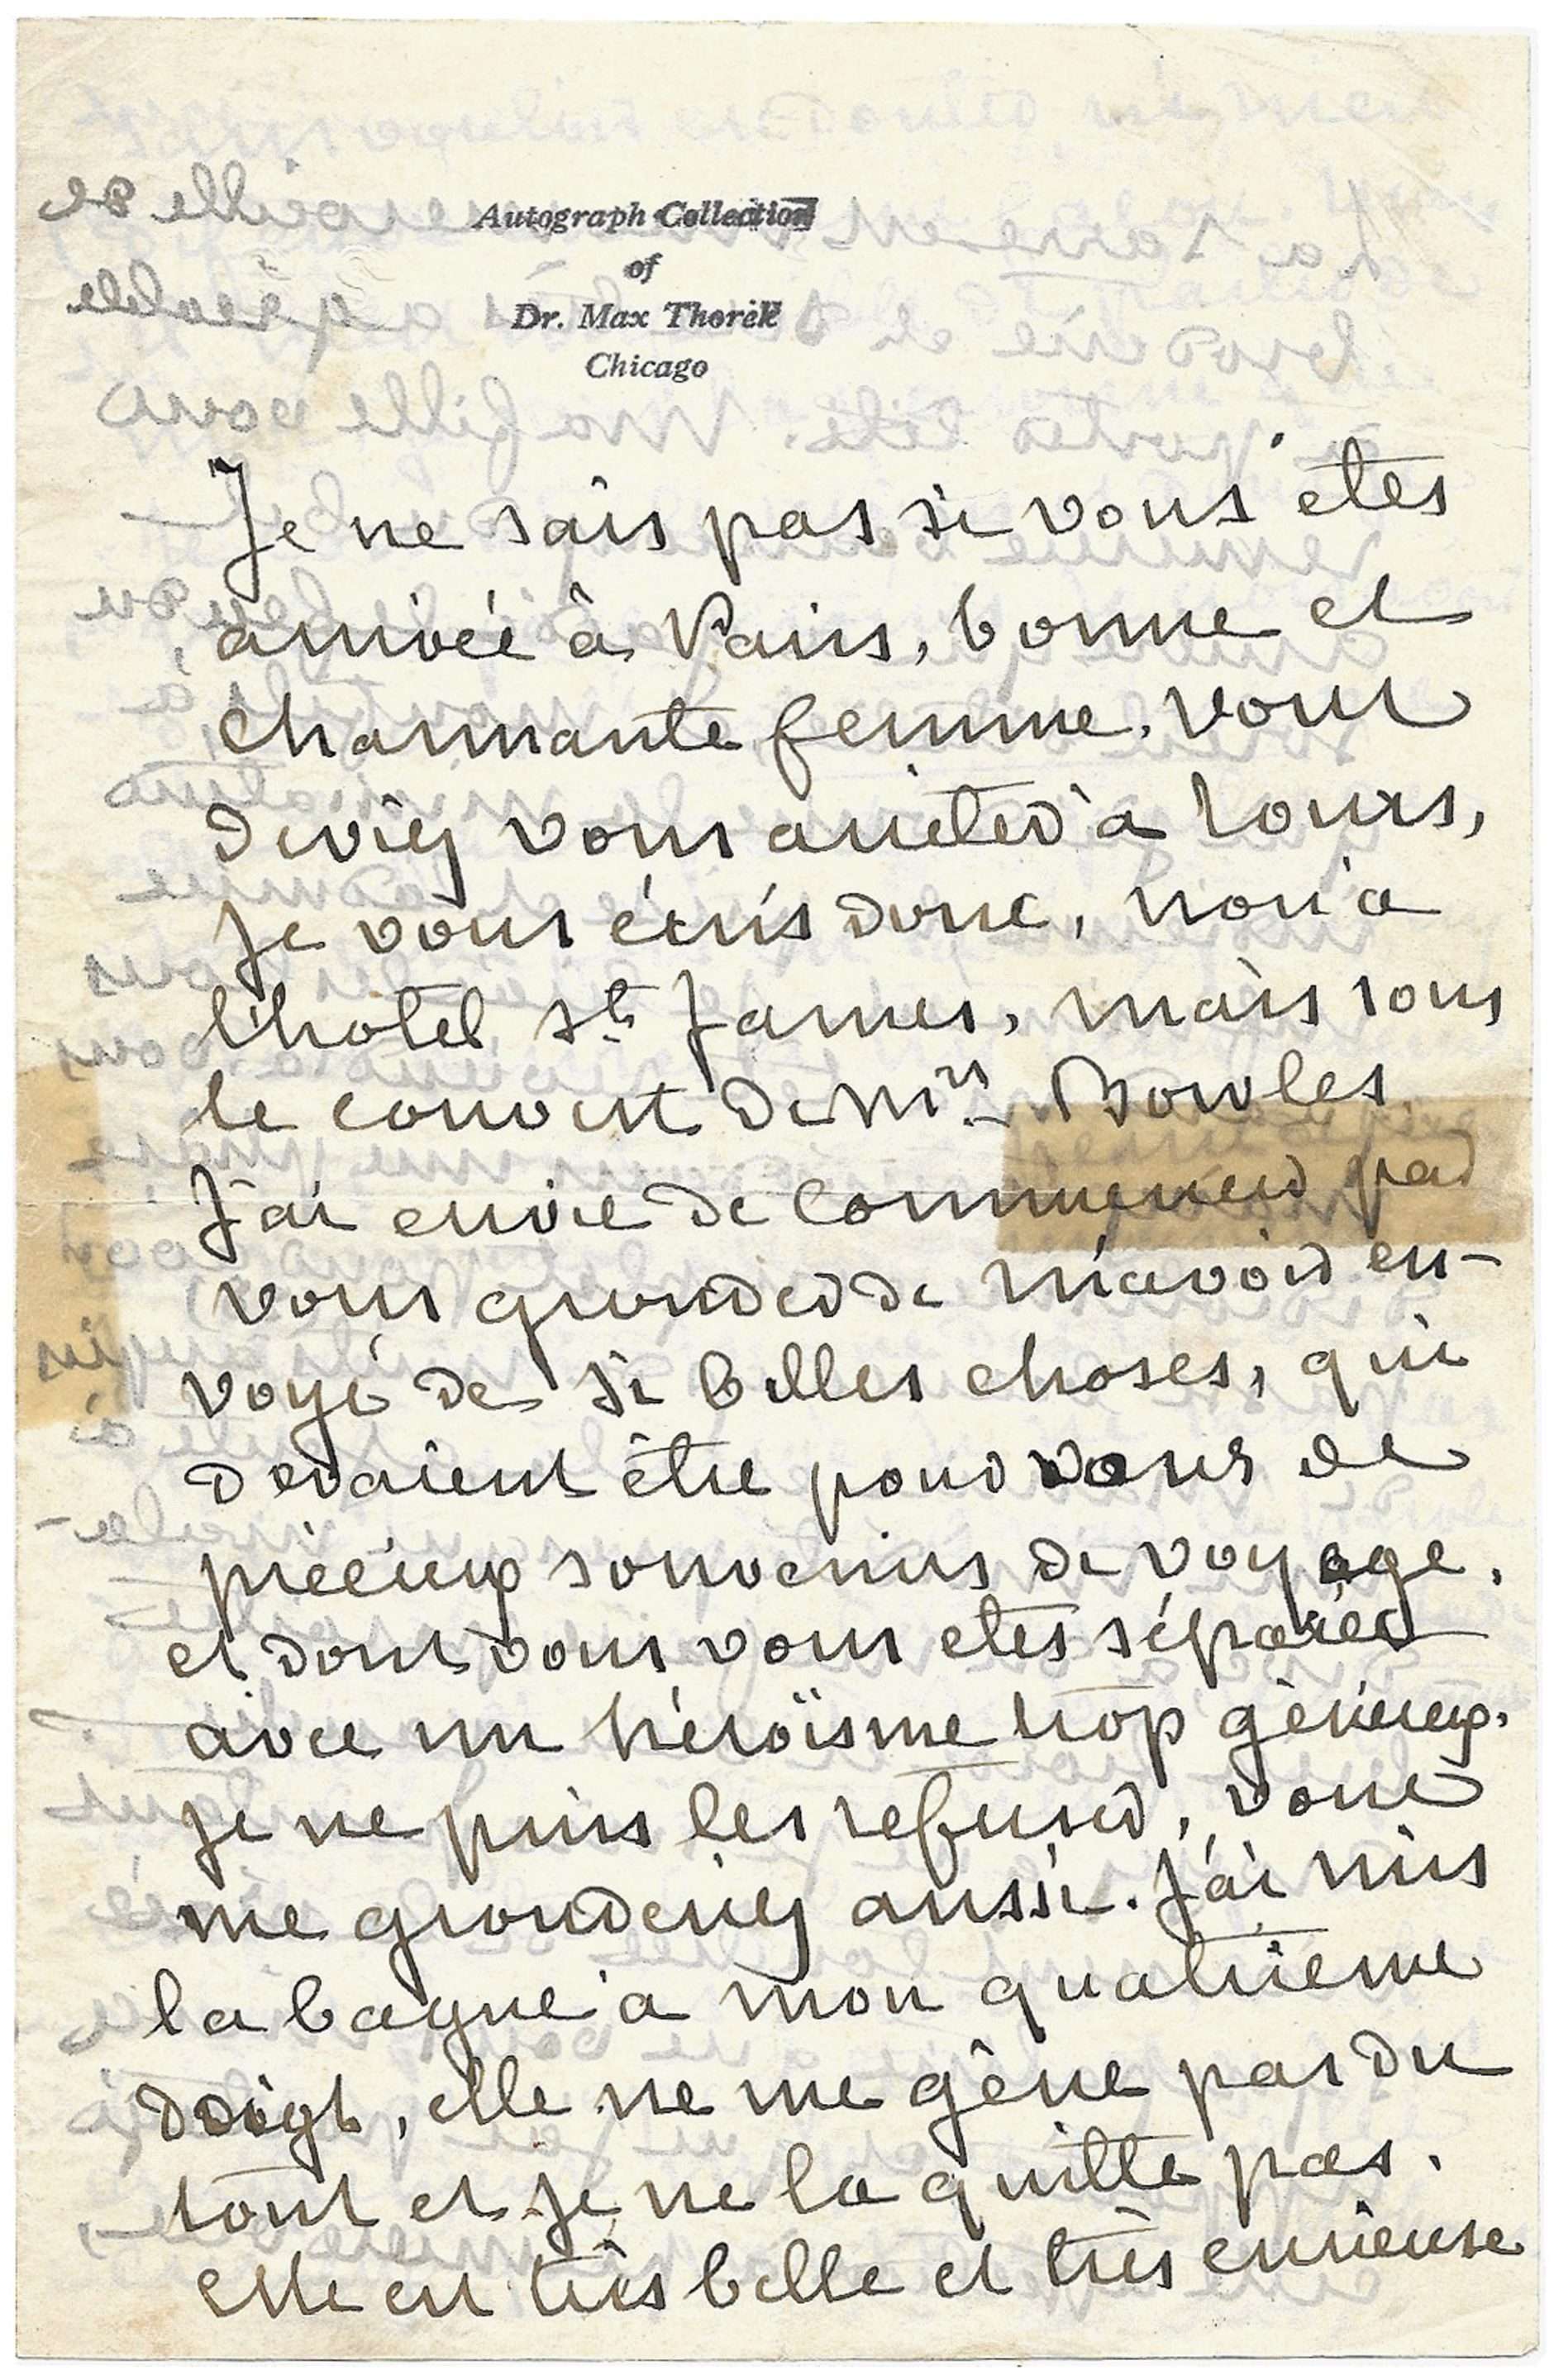 Autograph Collection
of
Dr. Max Thorek
Chicago
Je ne sais pas si vous êtes
arrivée à Paris, bonne et
charmante femme. Vous
deviez vous arrêter à Tours,
Je vous écris donc, non à
l'hotel St James, mais sous
le couvert de Mrs Bowles
J'ai envie de commencer par
vous gronder de m'avoir en-
voyé de si belles choses, qui
devaient être pour vous de
précieux souvenirs de voyage.
et dont vous vous etes séparée
avec un héroïsme trop généreux.
je ne puis les refuser, vous
me gronderiez aussi. J'ai mis
la bague à mon quatrième
doigt, elle ne me gêne pas du
tout et je ne la quitte pas.
elle est très belle et très curieuse